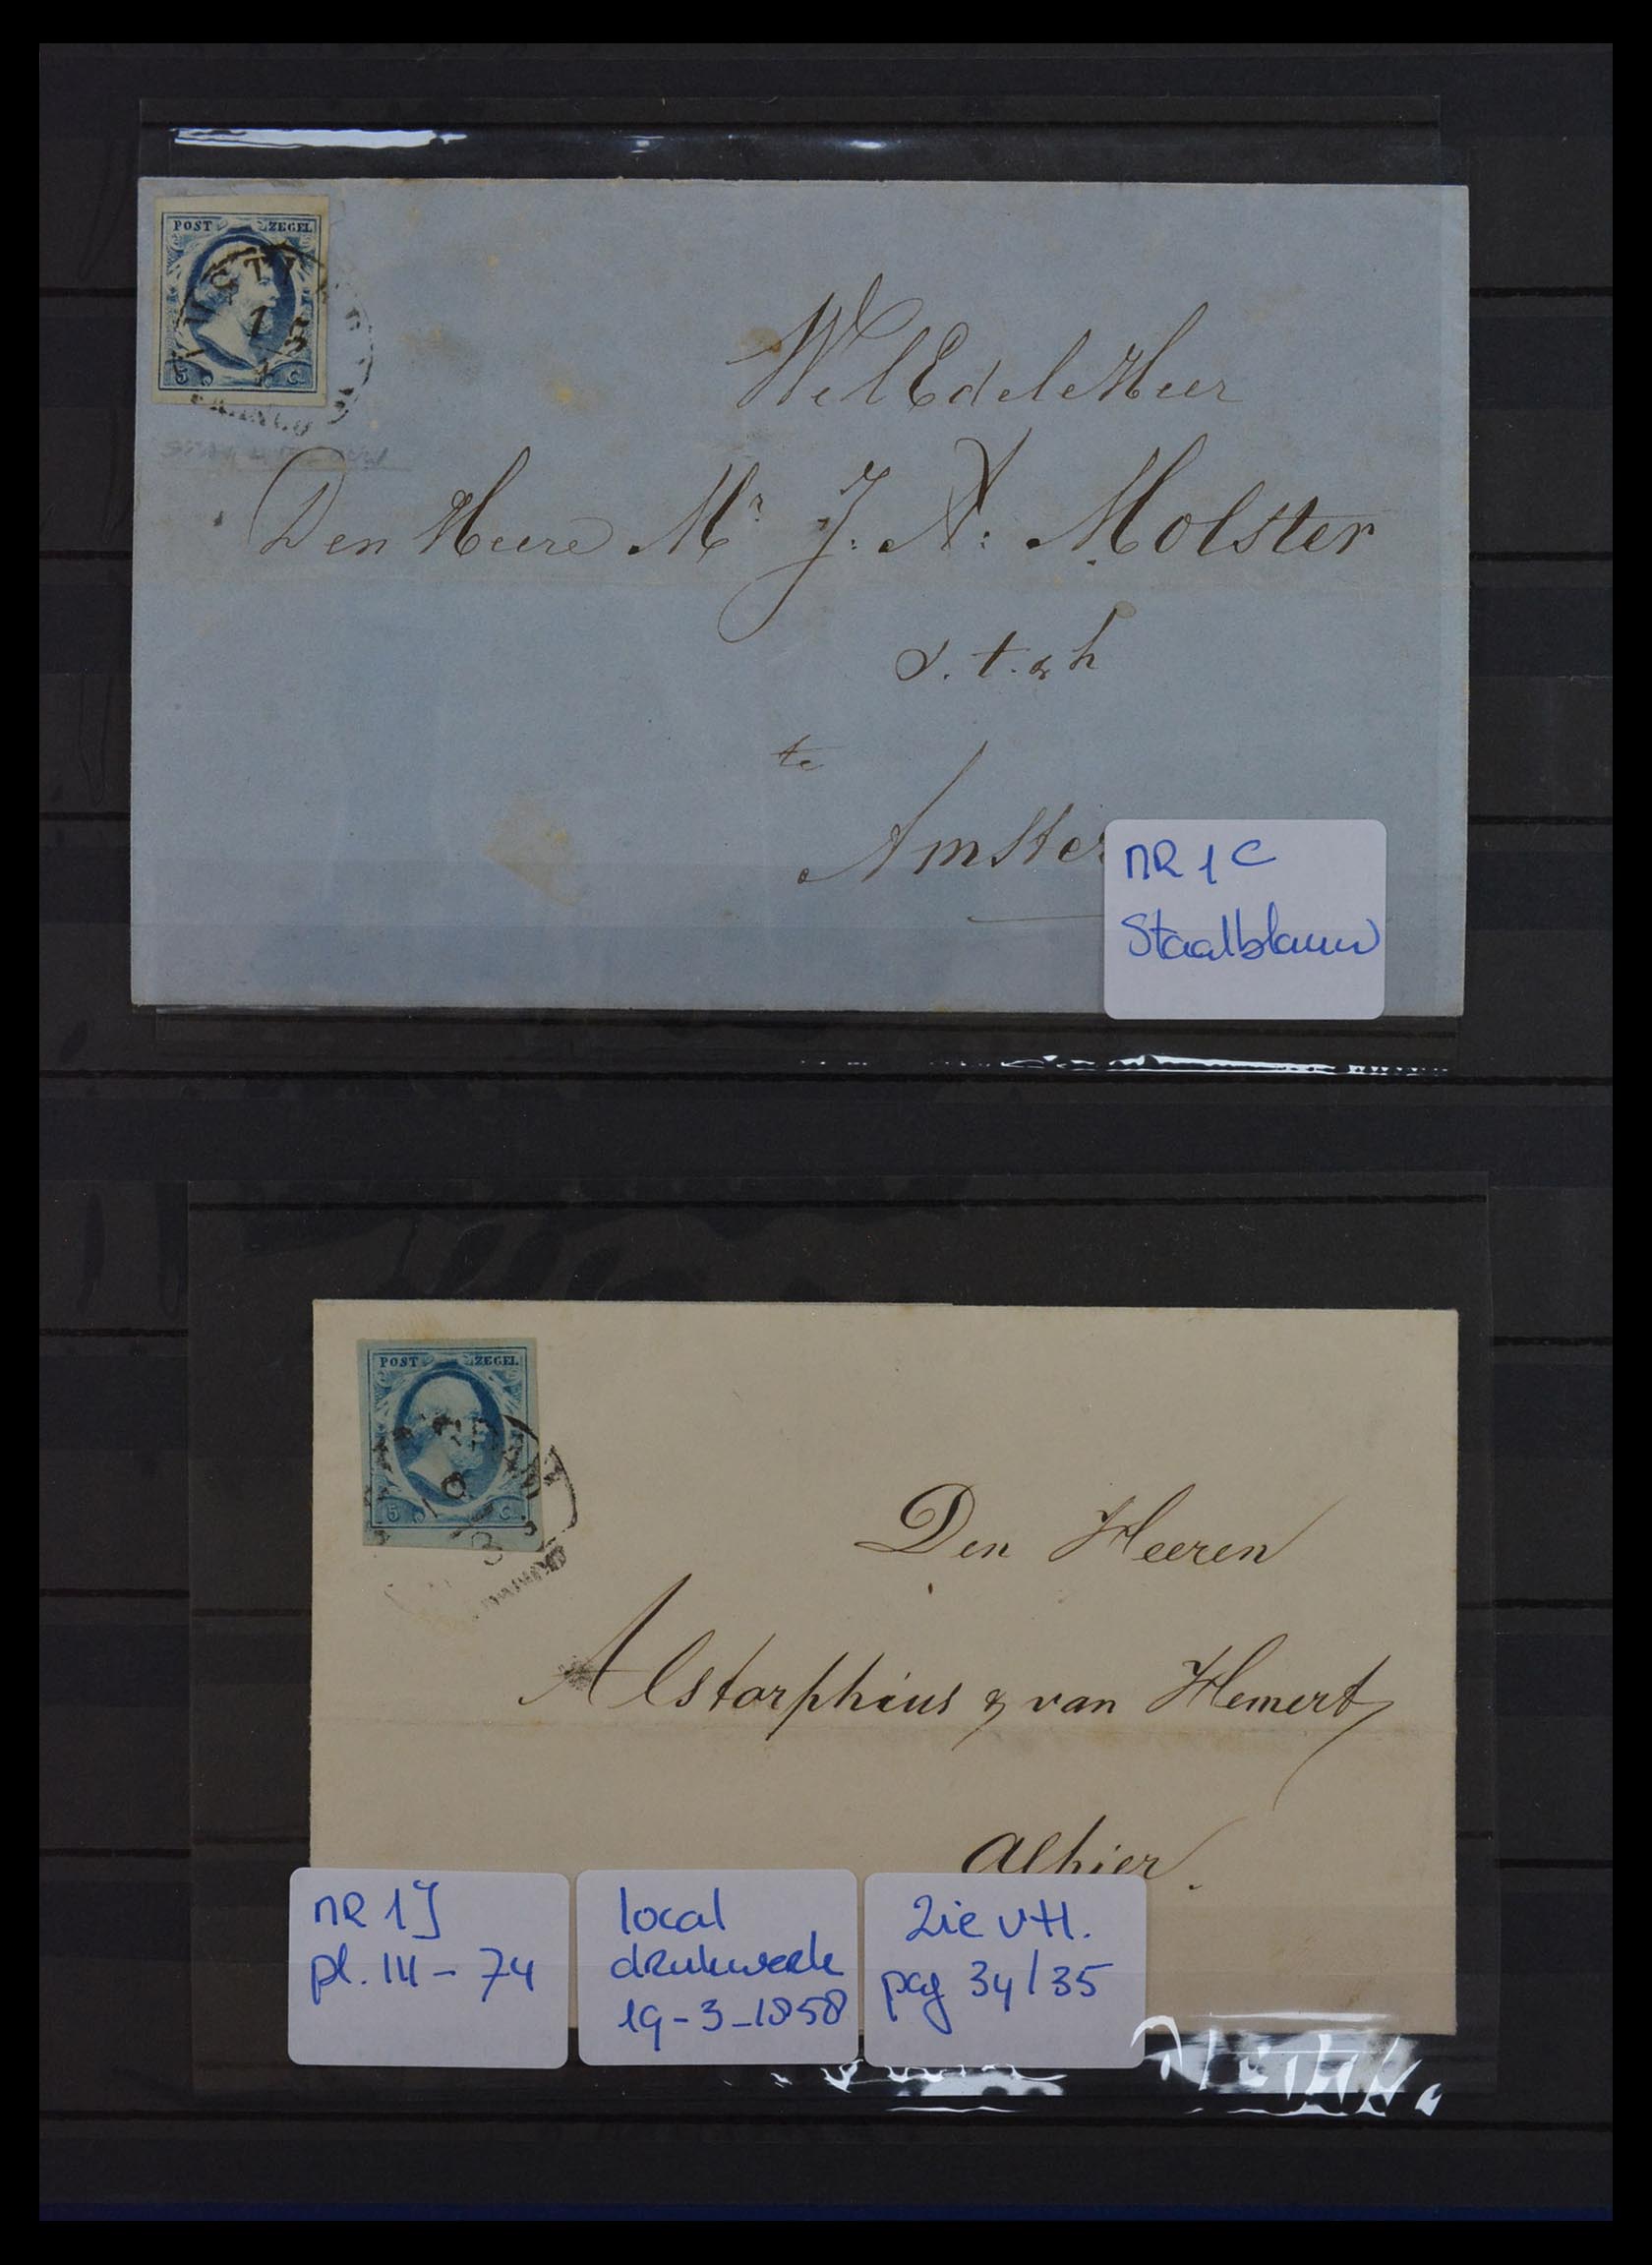 POST ZEGEL
5 C.
FRANCO
WelEdele Heer
Den Heere Mr. J: A: Molster
te
Amster
NR 1 C
Staalblauw
POST ZEGEL
5 C.
19
3
Den Heeren
Alstorphius & van Hemert
Alhier.
NR 1J
pl. III - 74
local
drukwerk
19-3-1858
Zie vH.
pag 34/35